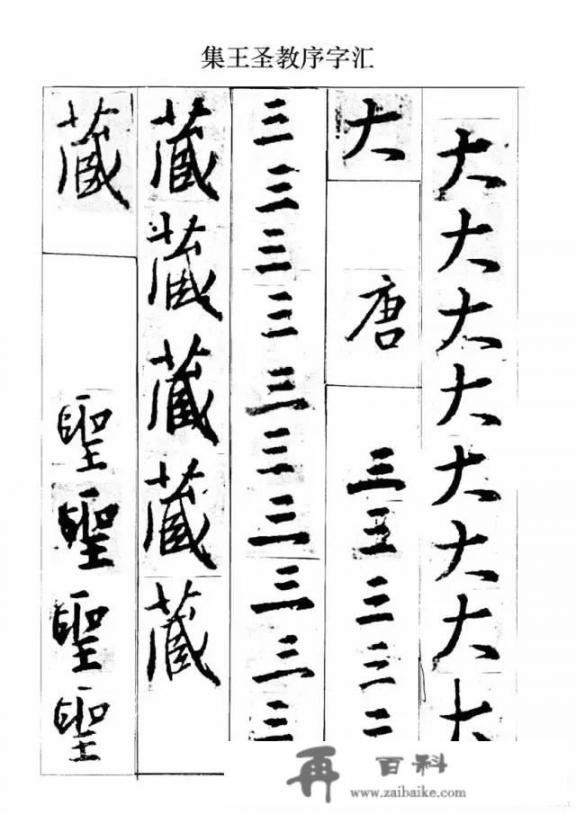 集王圣教序字汇
大大大大大大大大
大
唐
三三三三
三三三三三三三三三三
藏藏藏藏藏
藏
聖聖聖聖
再百科
www.zaibaike.com